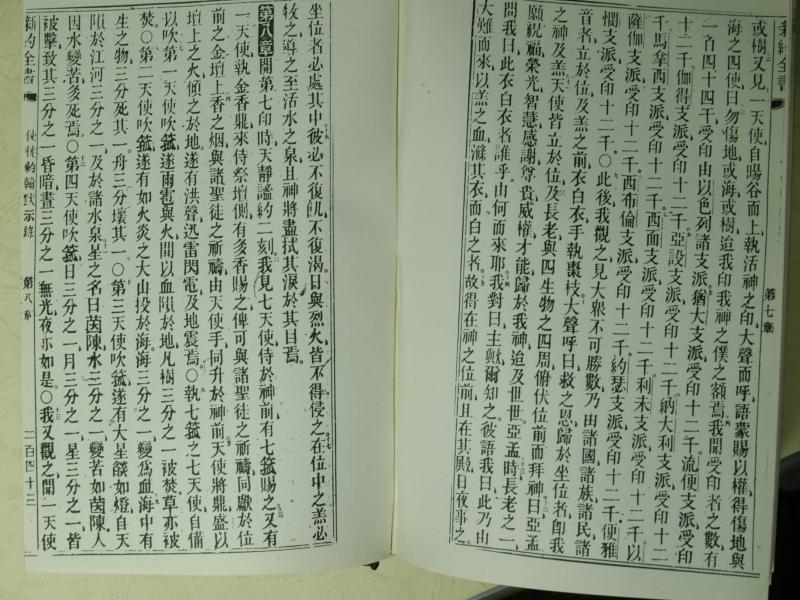 新約全書
第七章
或樹又見一天使自暘谷而上執活神之印大聲而呼語蒙賜以權得傷地與
海之四使曰勿傷地或海或樹迨我印我神之僕之額焉我聞受印者之數有
一百四十四千受印由以色列諸支派猶大支派受印十二千流便支派受印
十二千伽得支派受印十二千亞設支派受印十二千納大利支派受印十二
千馬拿西支派受印十二千西面支派受印十二千利未支派受印十二千以
薩伽支派受印十二千西布倫支派受印十二千約瑟支派受印十二千便雅
憫支派受印十二千○此後我觀之見大衆不可勝數乃由諸國諸族諸民諸
音者立於位及羔之前衣白衣手執棗枝大聲呼曰救之恩歸於坐位者卽我
之神及羔天使皆立於位及長老與四生物之四周俯伏位前而拜神曰亞孟
願祝福榮光智慧感謝尊貴威權才能歸於我神迨及世世亞孟時長老之一
問我曰此衣白衣者誰乎由何而來耶我對曰主歟爾知之彼語我曰此乃由
大難而來以羔之血滌其衣而白之者故得在神之位前且在其殿日夜事之
坐位者必處其中彼必不復飢不復渴日與烈火皆不得侵之在位中之羔必
牧之導之至活水之泉且神將盡拭其淚於其目焉
第八章開第七印時天靜謐約二刻我見七天使侍於神前有七箛賜之又有
一天使執金香鼎來侍祭壇側有多香賜之俾可與諸聖徒之祈禱同獻於位
前之金壇上香之烟與諸聖徒之祈禱由天使手同升於神前天使將鼎盛以
壇上之火傾之於地遂有洪聲迅雷閃電及地震焉○執七箛之七天使自備
以吹第一天使吹箛遂雨雹與火間以血隕於地凡樹三分之一被焚草亦被
焚○第二天使吹箛遂有如火炎之大山投於海海三分之一變爲血海中有
生之物三分死其一舟三分壞其一○第三天使吹箛遂有大星燄如燈自天
隕於江河三分之一及於諸水泉星之名曰茵陳水三分之一變苦如茵陳人
因水變苦多死焉○第四天使吹箛日三分之一月三分之一星三分之一皆
被擊致其三分之一昏暗晝三分之一無光夜亦如是○我又觀之聞一天使
新約全書
使徒約翰默示錄
第八章
二百四十三